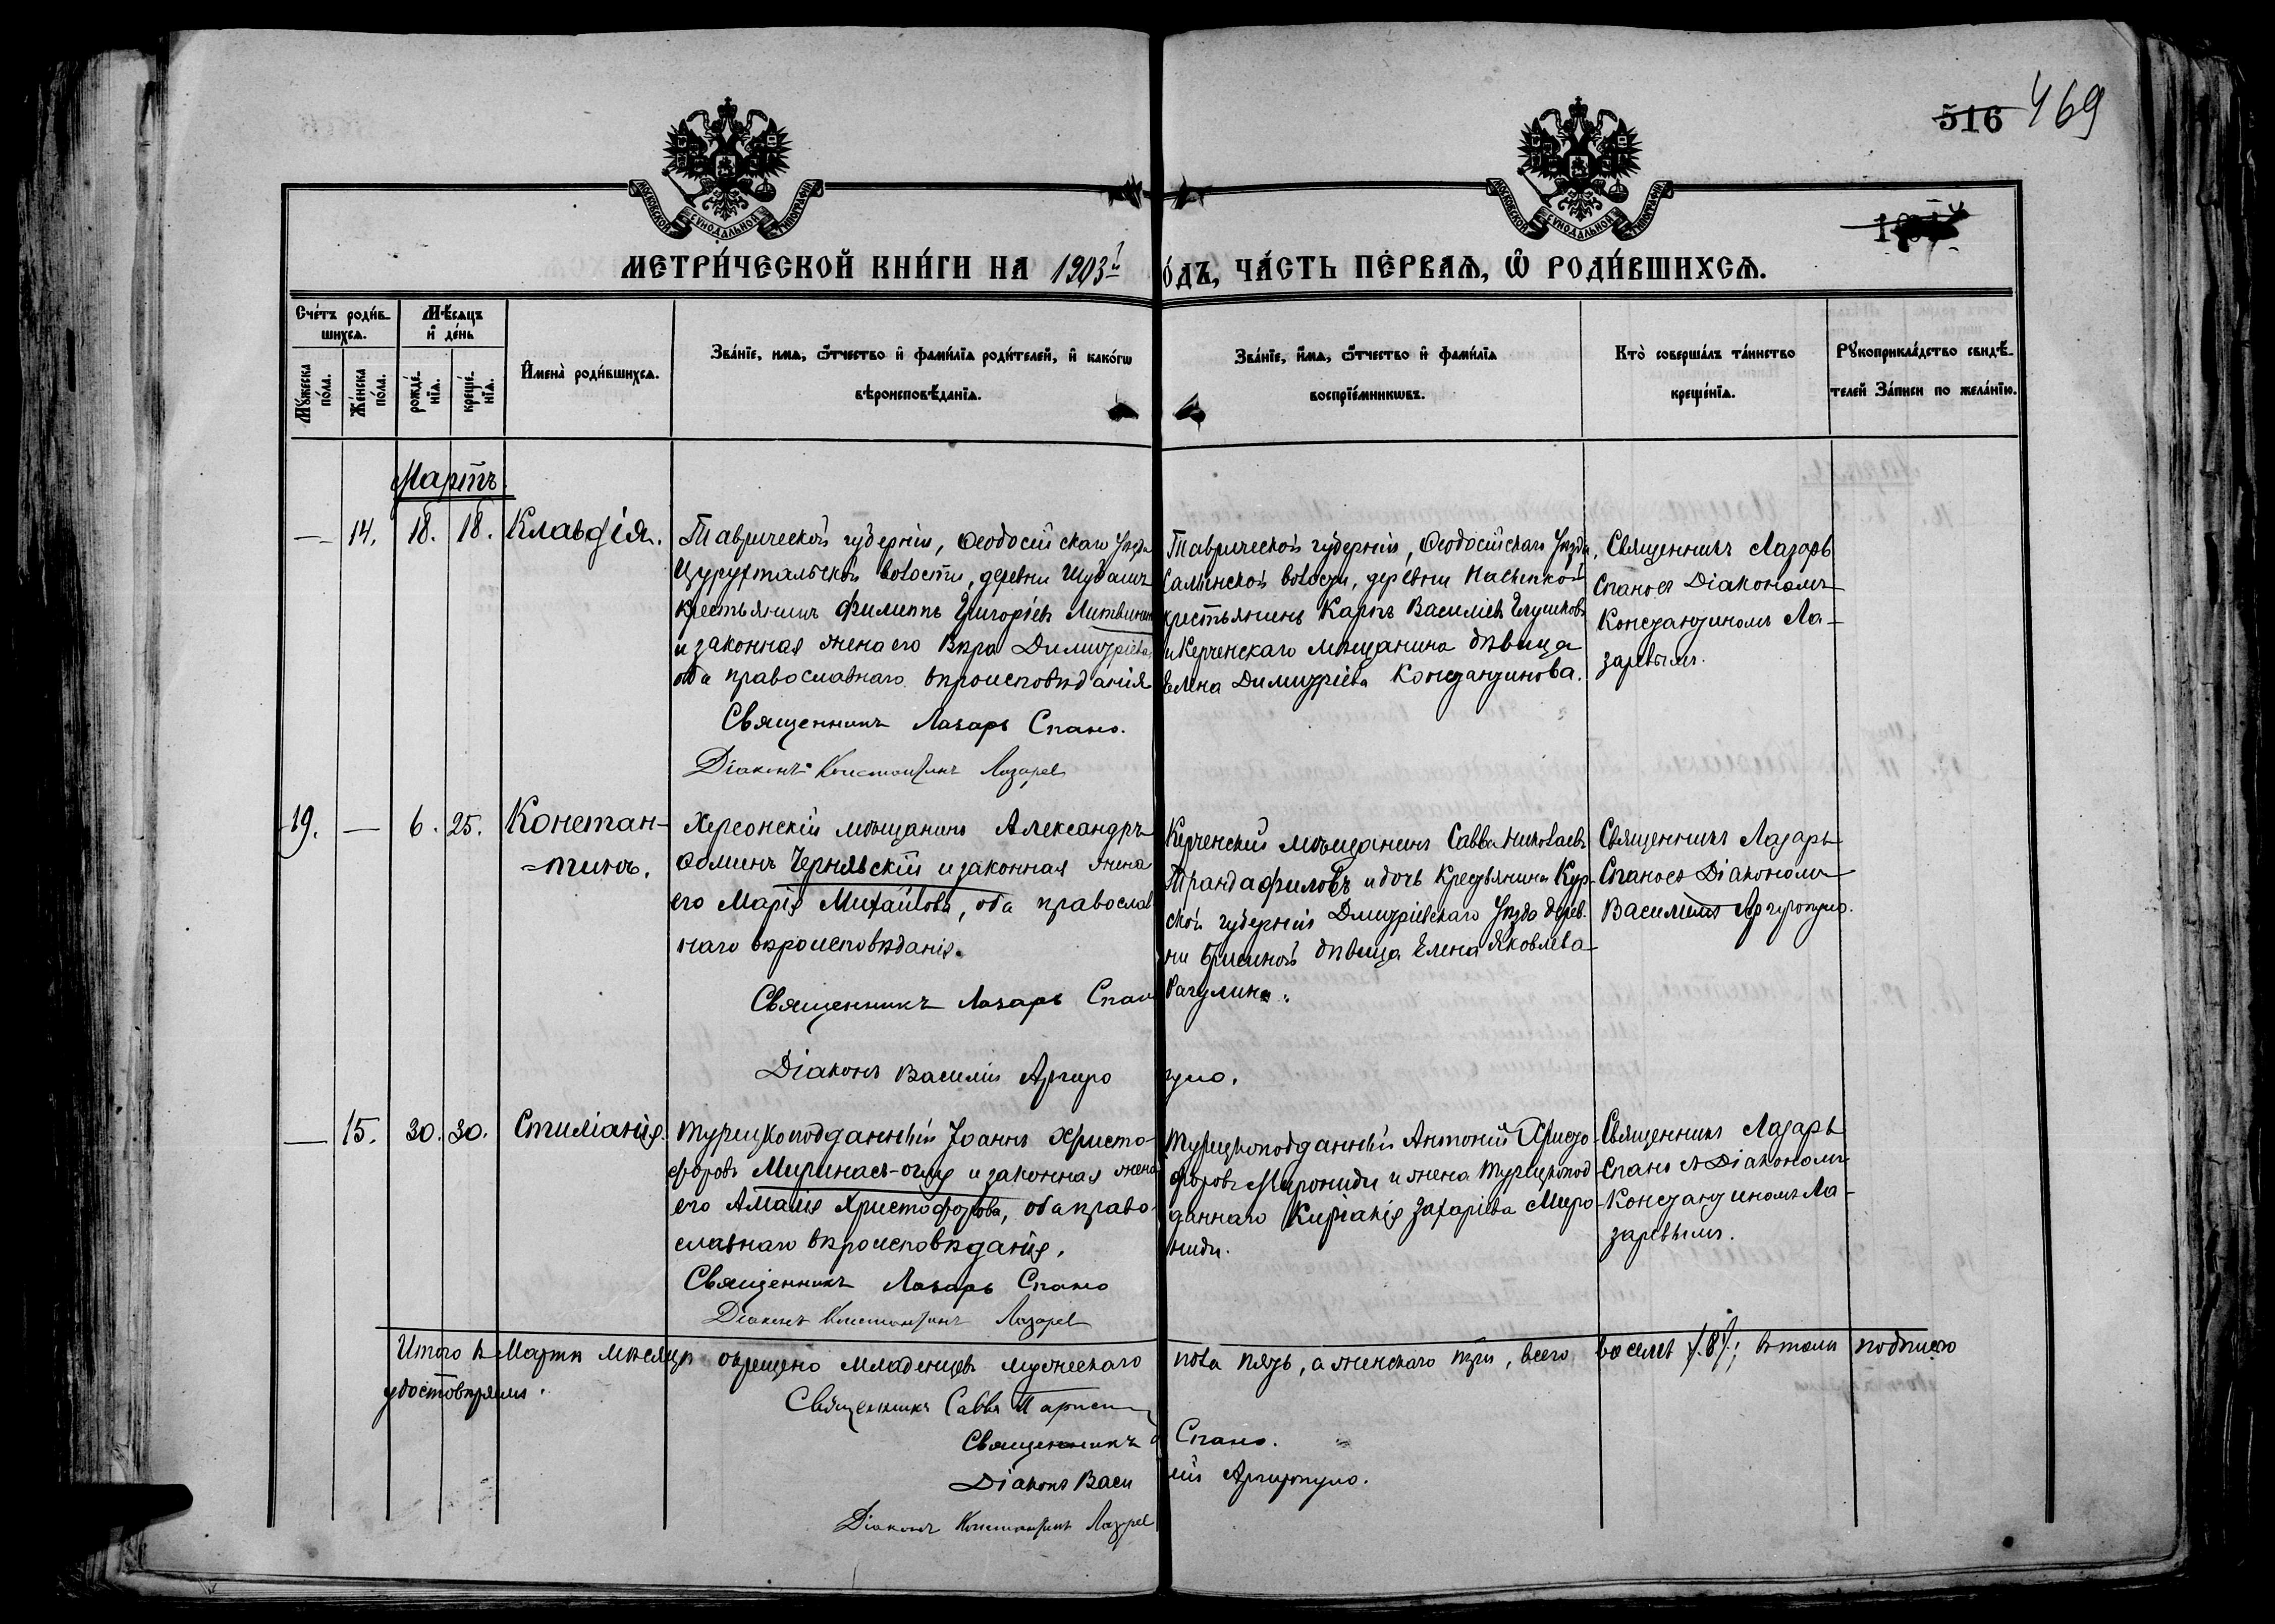 516 469
МОСКОВСКОЙ СѴНОДАЛЬНОЙ ТИПОГРАФІИ
МОСКОВСКОЙ СѴНОДАЛЬНОЙ ТИПОГРАФІИ
МЕТРИ́ЧЕСКОЙ КНИ́ГИ НА 1903й
О́ДЪ, ЧА́СТЬ ПЕ́РВАѦ, Ѽ РОДИ́ВШИХСѦ.
Сче́тъ роди́в-
шихсѧ.
Мꙋ́жеска по́ла.
Же́нска по́ла.
Мѣ́сѧцъ и҆ де́нь
рожде́-нїѧ.
креще́-нїѧ.
И҆мена̀ роди́вшихсѧ.
Зва́нїе, и҆мѧ, ѻ҆́тчество и҆ фами́лїѧ роди́телей, и҆ како́гѡ
вѣроисповѣ́данїѧ.
Зва́нїе, и҆́мѧ, ѻ҆́тчество и҆ фами́лїѧ
воспрїе́мникѡвъ.
Кто̀ соверша́лъ та́инство
креще́нїѧ.
Рꙋкоприкла́дство свидѣ́-
телей за́писи по жела́нїю.
Мартъ
— 14. 18. 18. Клавдія.
Таврической губерніи, Ѳеодосійскаго Уѣзда
Цурухтальской волости, деревни
крестьянинъ Филиппъ Григоріевъ Литвиненко
и законная жена его Вѣра Димитріева,
оба православнаго вѣроисповѣданія
Священникъ Лазарь Спано.
Діаконъ Константинъ Лазарев
Таврической губерніи, Ѳеодосійскаго Уѣзда,
волости, деревни
крестьянинъ Карпъ Василіевъ Глушковъ
и Керченскаго мѣщанина дѣвица
Елена Димитріева Константинова.
Священникъ Лазарь
Спано съ Діакономъ
Константиномъ Ла-
заревымъ.
19. — 6. 25. Констан-
-тинъ.
Херсонскій мѣщанинъ Александръ
Ѳоминъ Чернявскій и законная жена
его Марія Михайлова, оба православ
наго вѣроисповѣданія.
Священникъ Лазарь Спано
Діаконъ Василій Аргиро
пуло.
Керченскій мѣщанинъ Савва Николаевъ
Трандафиловъ и дочь Крестьянина Кур-
ской губерніи Дмитріевскаго Уѣзда дерев-
ни дѣвица Елена Яковлева
Рагулина.
Священникъ Лазарь
Спано съ Діакономъ
Василіемъ Аргиропуло.
— 15. 30. 30. Стиліанія.
Турецкоподданный Іоаннъ Христо-
форовъ Миринасъ-оглу и законная жена
его Амалія Христофорова, оба право-
славнаго вѣроисповѣданія.
Священникъ Лазарь Спано
Діаконъ Константинъ Лазарев
Турецкоподданный Антоній Христо-
форовъ Мирониди и жена Турецкопод
даннаго Киріакія Захаріева Миро-
ниди.
Священникъ Лазарь
Спано съ Діакономъ
Константиномъ Ла-
заревымъ.
Итого въ Мартѣ мѣсяцѣ окрещено младенцевъ мужескаго пола пять, а женскаго три, всего восемь /.8/.; въ томъ подписью
удостовѣряемъ.
Священникъ Савва
Священникъ Спано.
Діаконъ Василій Аргиропуло.
Діаконъ Константинъ Лазарев